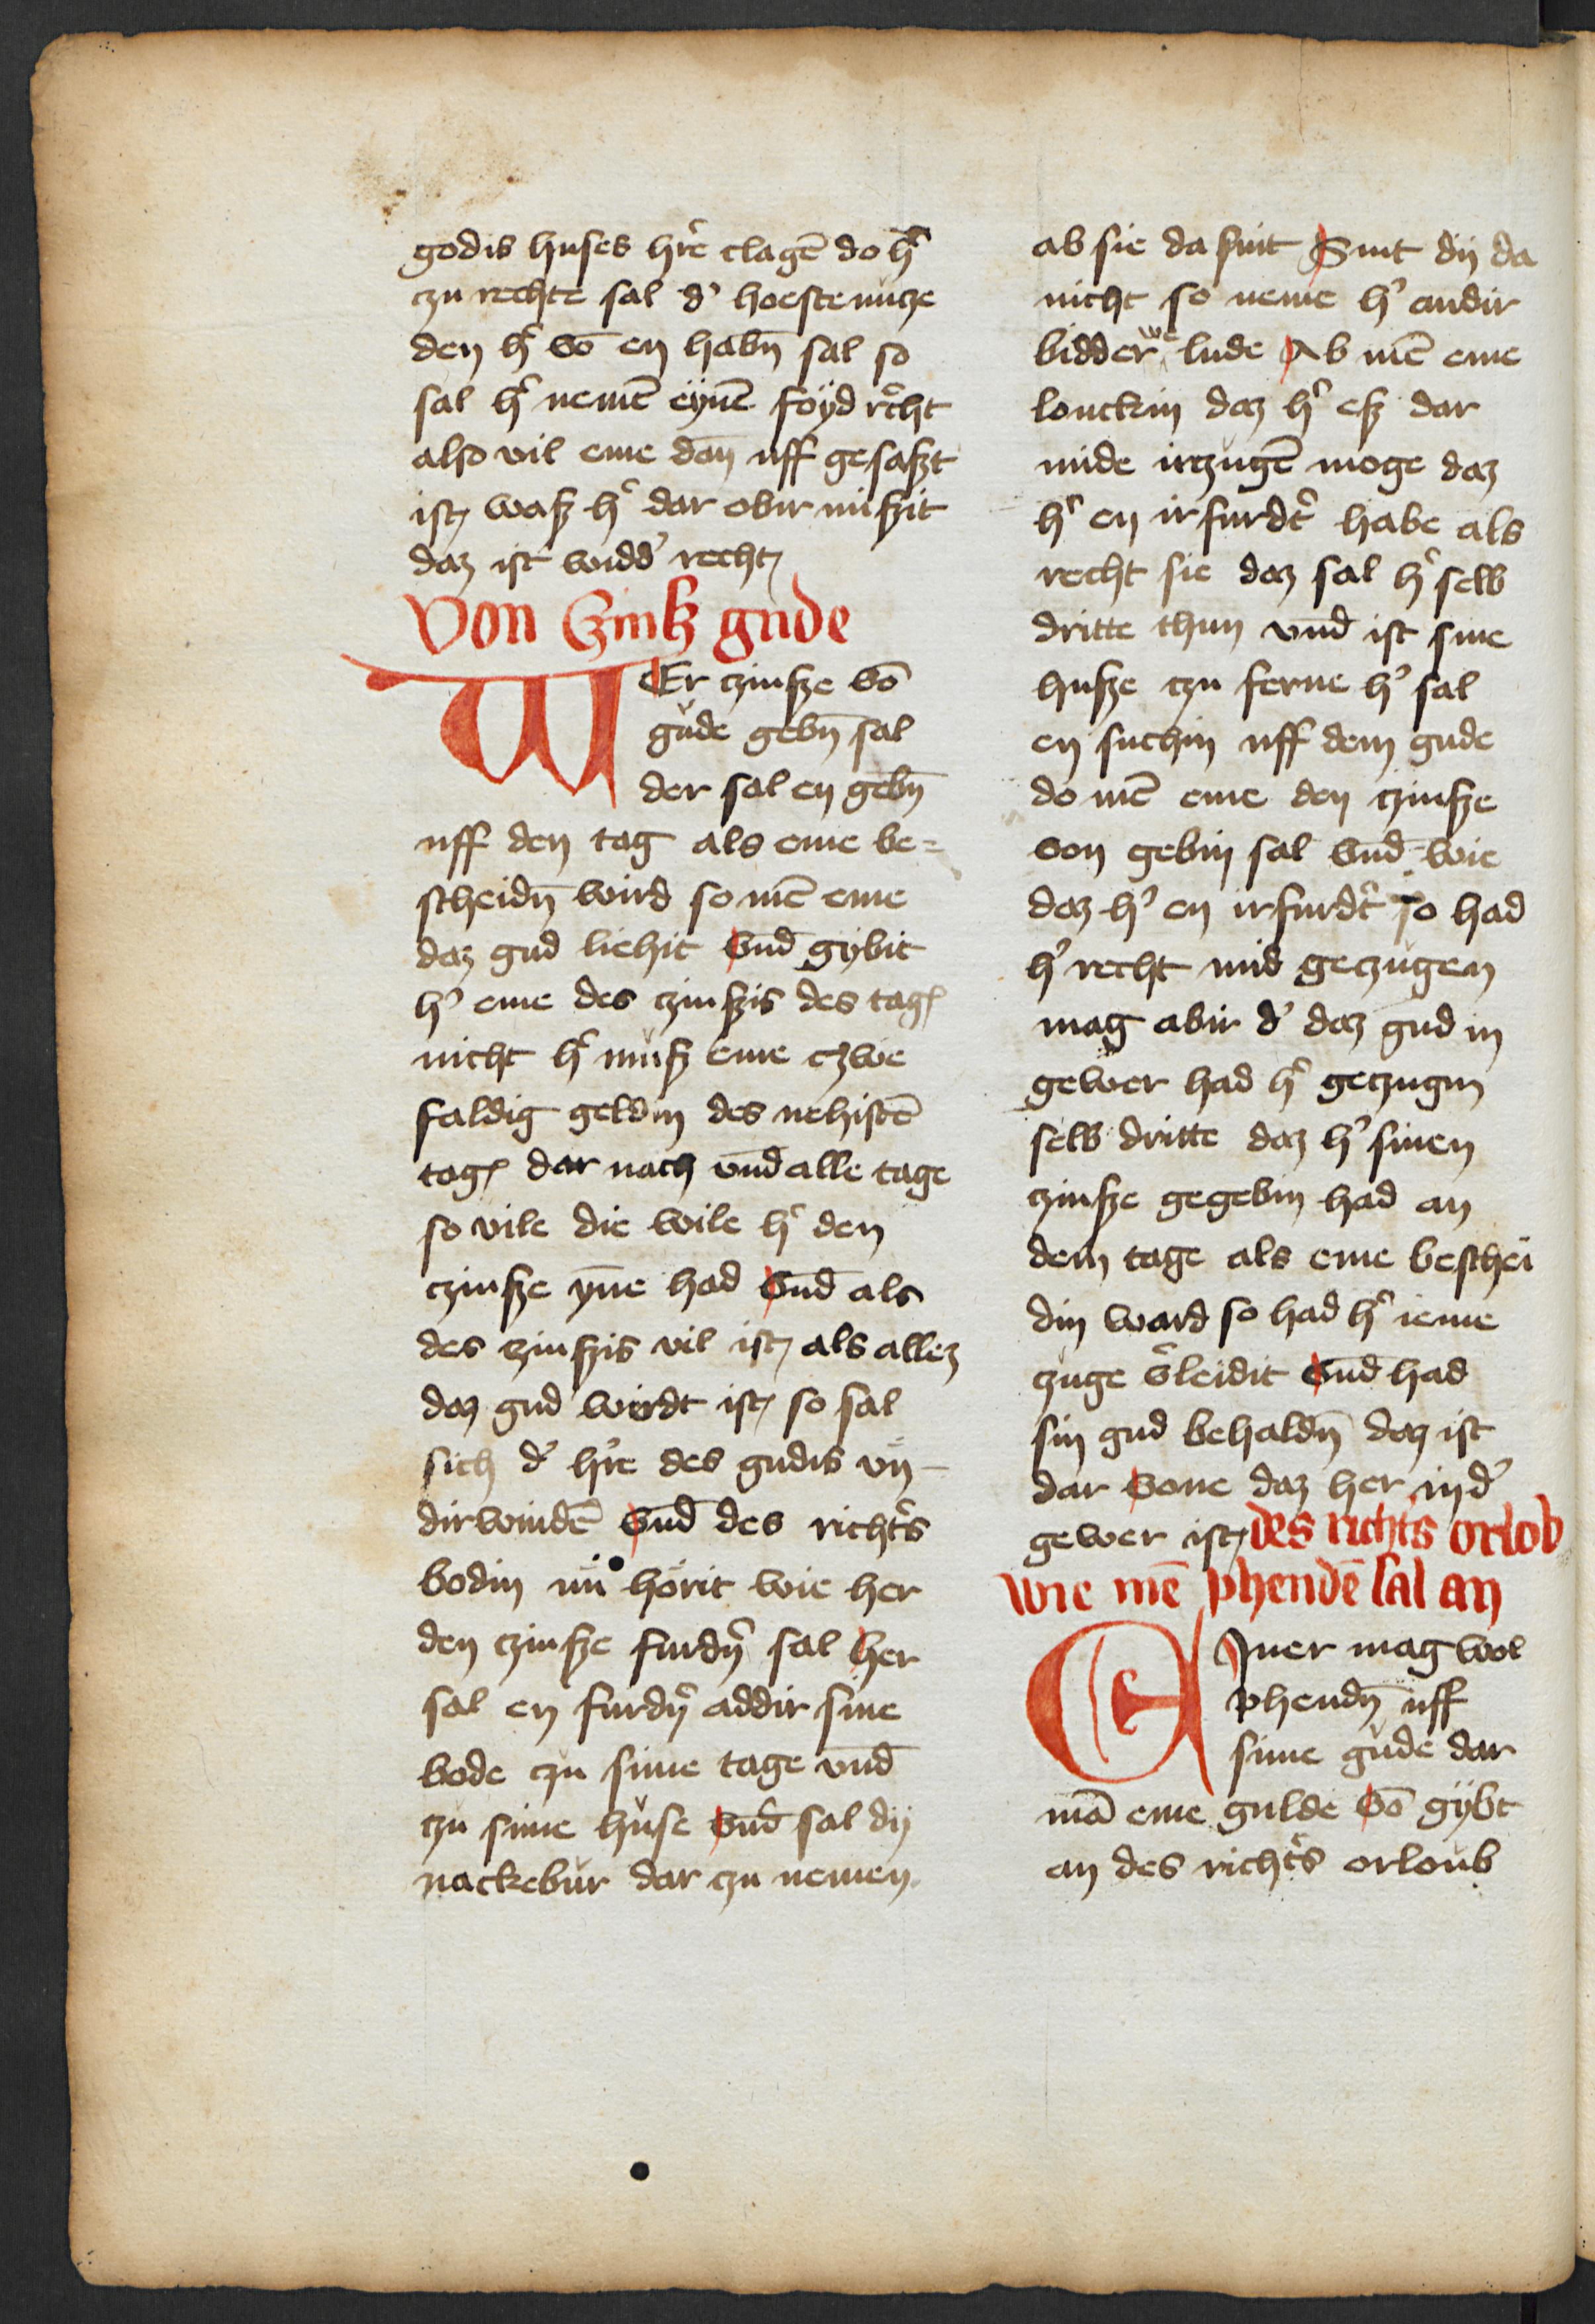 godis huses hr̄e clagē do h'
czu rechte sal d' hoeste nucze
den h' vō en habn̄ sal so
sal h' nemē eynē foyd rcht
also vil eme dan uff gesaszt
ist wasz h' dar obir niszit
daz ist widd' recht
Von Czinsz gude
WEr czinsze vō
gude gebn̄ sal
der sal en gebn̄
uff den tag als eme be=
scheidn̄ wird so mē eme
daz gud liehit vnd gybit
h' eme des czinszis des tag
nicht h' musz eme czwe
faldig geldin des nehistē
tag dar nach vnd alle tage
so vile die wile h' den
czinsze yn̄e had vnd als
des czinszis vil ist als allez
daz gud wirdt ist so sal
sich d' hr̄e des gudis vn
dirwindē vnd des richt's
bodin nu horit wie her
den czinsze furdn̄ sal her
sal en furdn̄ addir sine
bode czu sime tage vnd
czu sime huse vnd sal dy
nackebur dar czu nemen
ab sie da sint Sint dy da
nicht so neme h' andir
bidderwe lude Ab mē eme
louckin daz h' esz dar
mide irczugē moge daz
h' en irfurdt' habe als
recht sie daz sal h' selb
dritte thun vnd ist sine
husze czu ferne h' sal
en suchin uff dem gude
do mē eme den czinsze
von gebin sal vnd wie
daz h' en irfurdt' so had
h' recht mid geczugen
mag abir d' daz gud in
gewer had h' geczugin
selb dritte daz h' sinen
czinsze gegebin had an
dem tage als eme beschei
din ward so had h' ieme
czuge v'leidit vnd had
sin gud behaldn̄ daz ist
dar vone daz her in d'
gewer ist des richt's orlob
wie mē phendē sal an
Einer mag wol
phendn̄ uff
sime gude dar
mā eme gulde vō gybt
an des richt's orloub